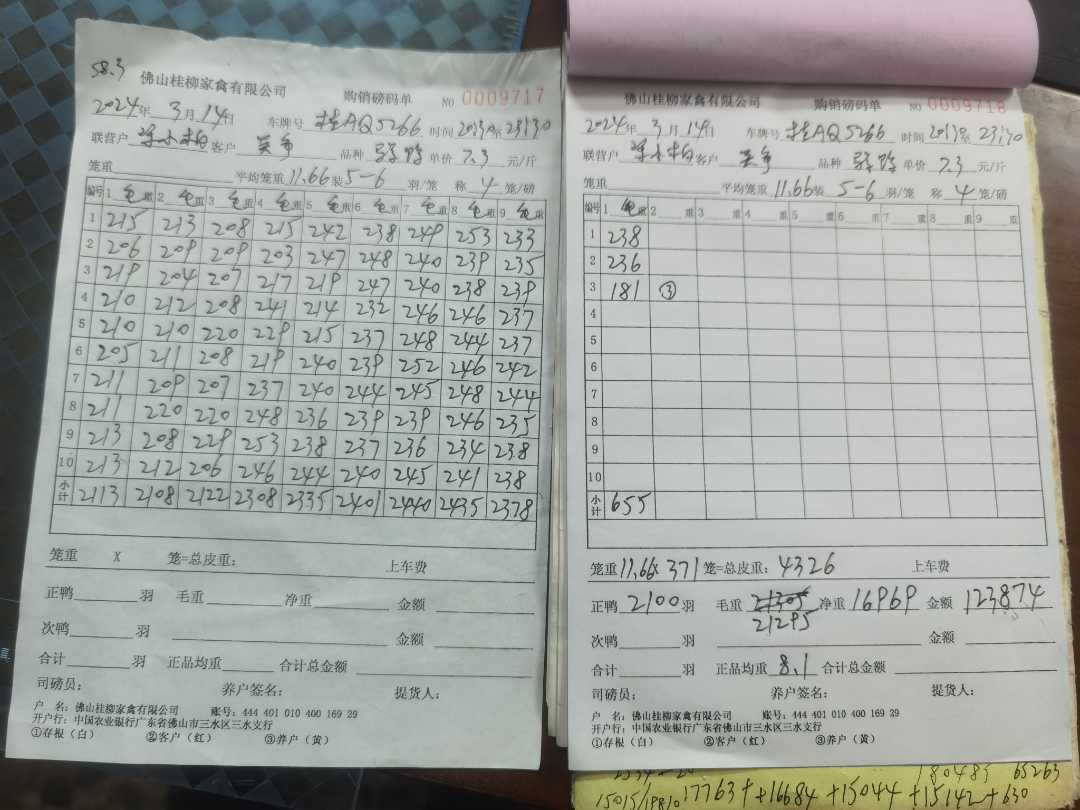 58.3
佛山桂柳家禽有限公司
购销磅码单 NO 0009717
2024年 3月 14日 车牌号 桂AQ5266 时间
联营户 客户 品种 单价 7.3 元/斤
笼重 平均笼重 11.66 装 5-6 羽/笼 称 4 笼/磅
编号 1 毛重 2 毛重 3 毛重 4 毛重 5 毛重 6 毛重 7 毛重 8 毛重 9 毛重
1 215 213 208 215 242 238 249 253 233
2 206 209 209 203 247 248 240 239 235
3 219 204 207 217 219 247 240 238 239
4 210 212 208 241 214 232 246 246 237
5 210 210 220 229 215 237 248 244 237
6 205 211 208 219 240 239 252 246 242
7 211 209 207 237 240 244 245 248 244
8 211 220 220 248 236 239 239 246 235
9 213 208 229 253 238 237 236 234 238
10 213 212 206 246 244 240 245 241 238
小计 2113 2108 2122 2308 2335 2401 2440 2435 2378
笼重 X 笼=总皮重: 上车费
正鸭 羽 毛重 净重 金额
次鸭 羽 金额
合计 羽 正品均重 合计总金额
司磅员: 养户签名: 提货人:
户 名: 佛山桂柳家禽有限公司 账号: 444 401 010 400 169 29
开户行: 中国农业银行广东省佛山市三水区三水支行
①存根（白） ②客户（红） ③养户（黄）
佛山桂柳家禽有限公司
购销磅码单 NO 0009718
2024年 3月 14日 车牌号 桂AQ5266 时间
联营户 客户 品种 单价 7.3 元/斤
笼重 平均笼重 11.66 装 5-6 羽/笼 称 4 笼/磅
编号 1 毛重 2 重 3 重 4 重 5 重 6 重 7 重 8 重 9 重
1 238
2 236
3 181 ③
4
5
6
7
8
9
10
小计 655
笼重 11.66 x 371 笼=总皮重: 4326 上车费
正鸭 2100 羽 毛重 21305 净重 16969 金额 123874
21295
次鸭 羽 金额
合计 羽 正品均重 8.1 合计总金额
司磅员: 养户签名: 提货人:
户 名: 佛山桂柳家禽有限公司 账号: 444 401 010 400 169 29
开户行: 中国农业银行广东省佛山市三水区三水支行
①存根（白） ②客户（红） ③养户（黄）
180483 65263
17763++16684+15044+15142+630